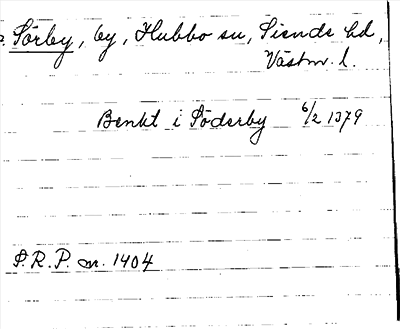 Sörby, by, Hubbo sn, Siende hd,
Västm. l.
Benkt i Söderby 6/2 1379
S. R. P. nr. 1404